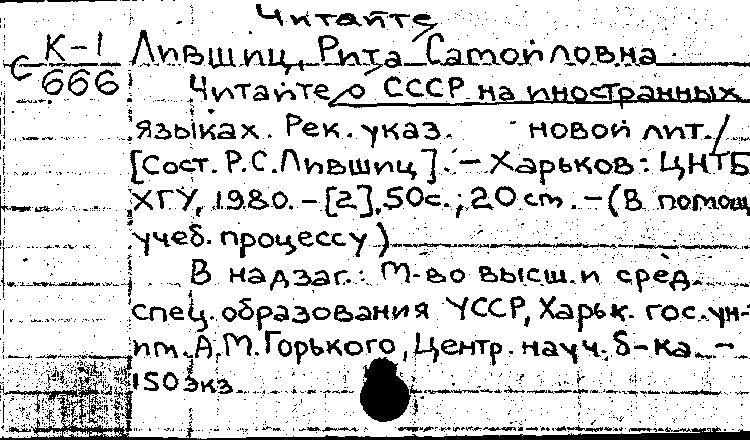 Читайте
К-1 Лившиц, Рита Самойловна
с 666
Читайте о СССР на иностранных
языках. Рек. указ. новой лит. /
[Сост. Р.С.Лившиц]. – Харьков: ЦНТБ
ХГУ, 1980. – [2], 50с.; 20 cm. – (В помощ
учеб. процессу)
В надзаг.: М-во высш. и сред.
спец. образования УССР, Харьк. гос. ун-
им. А.М.Горького, Центр. науч. б-ка. –
150 экз.